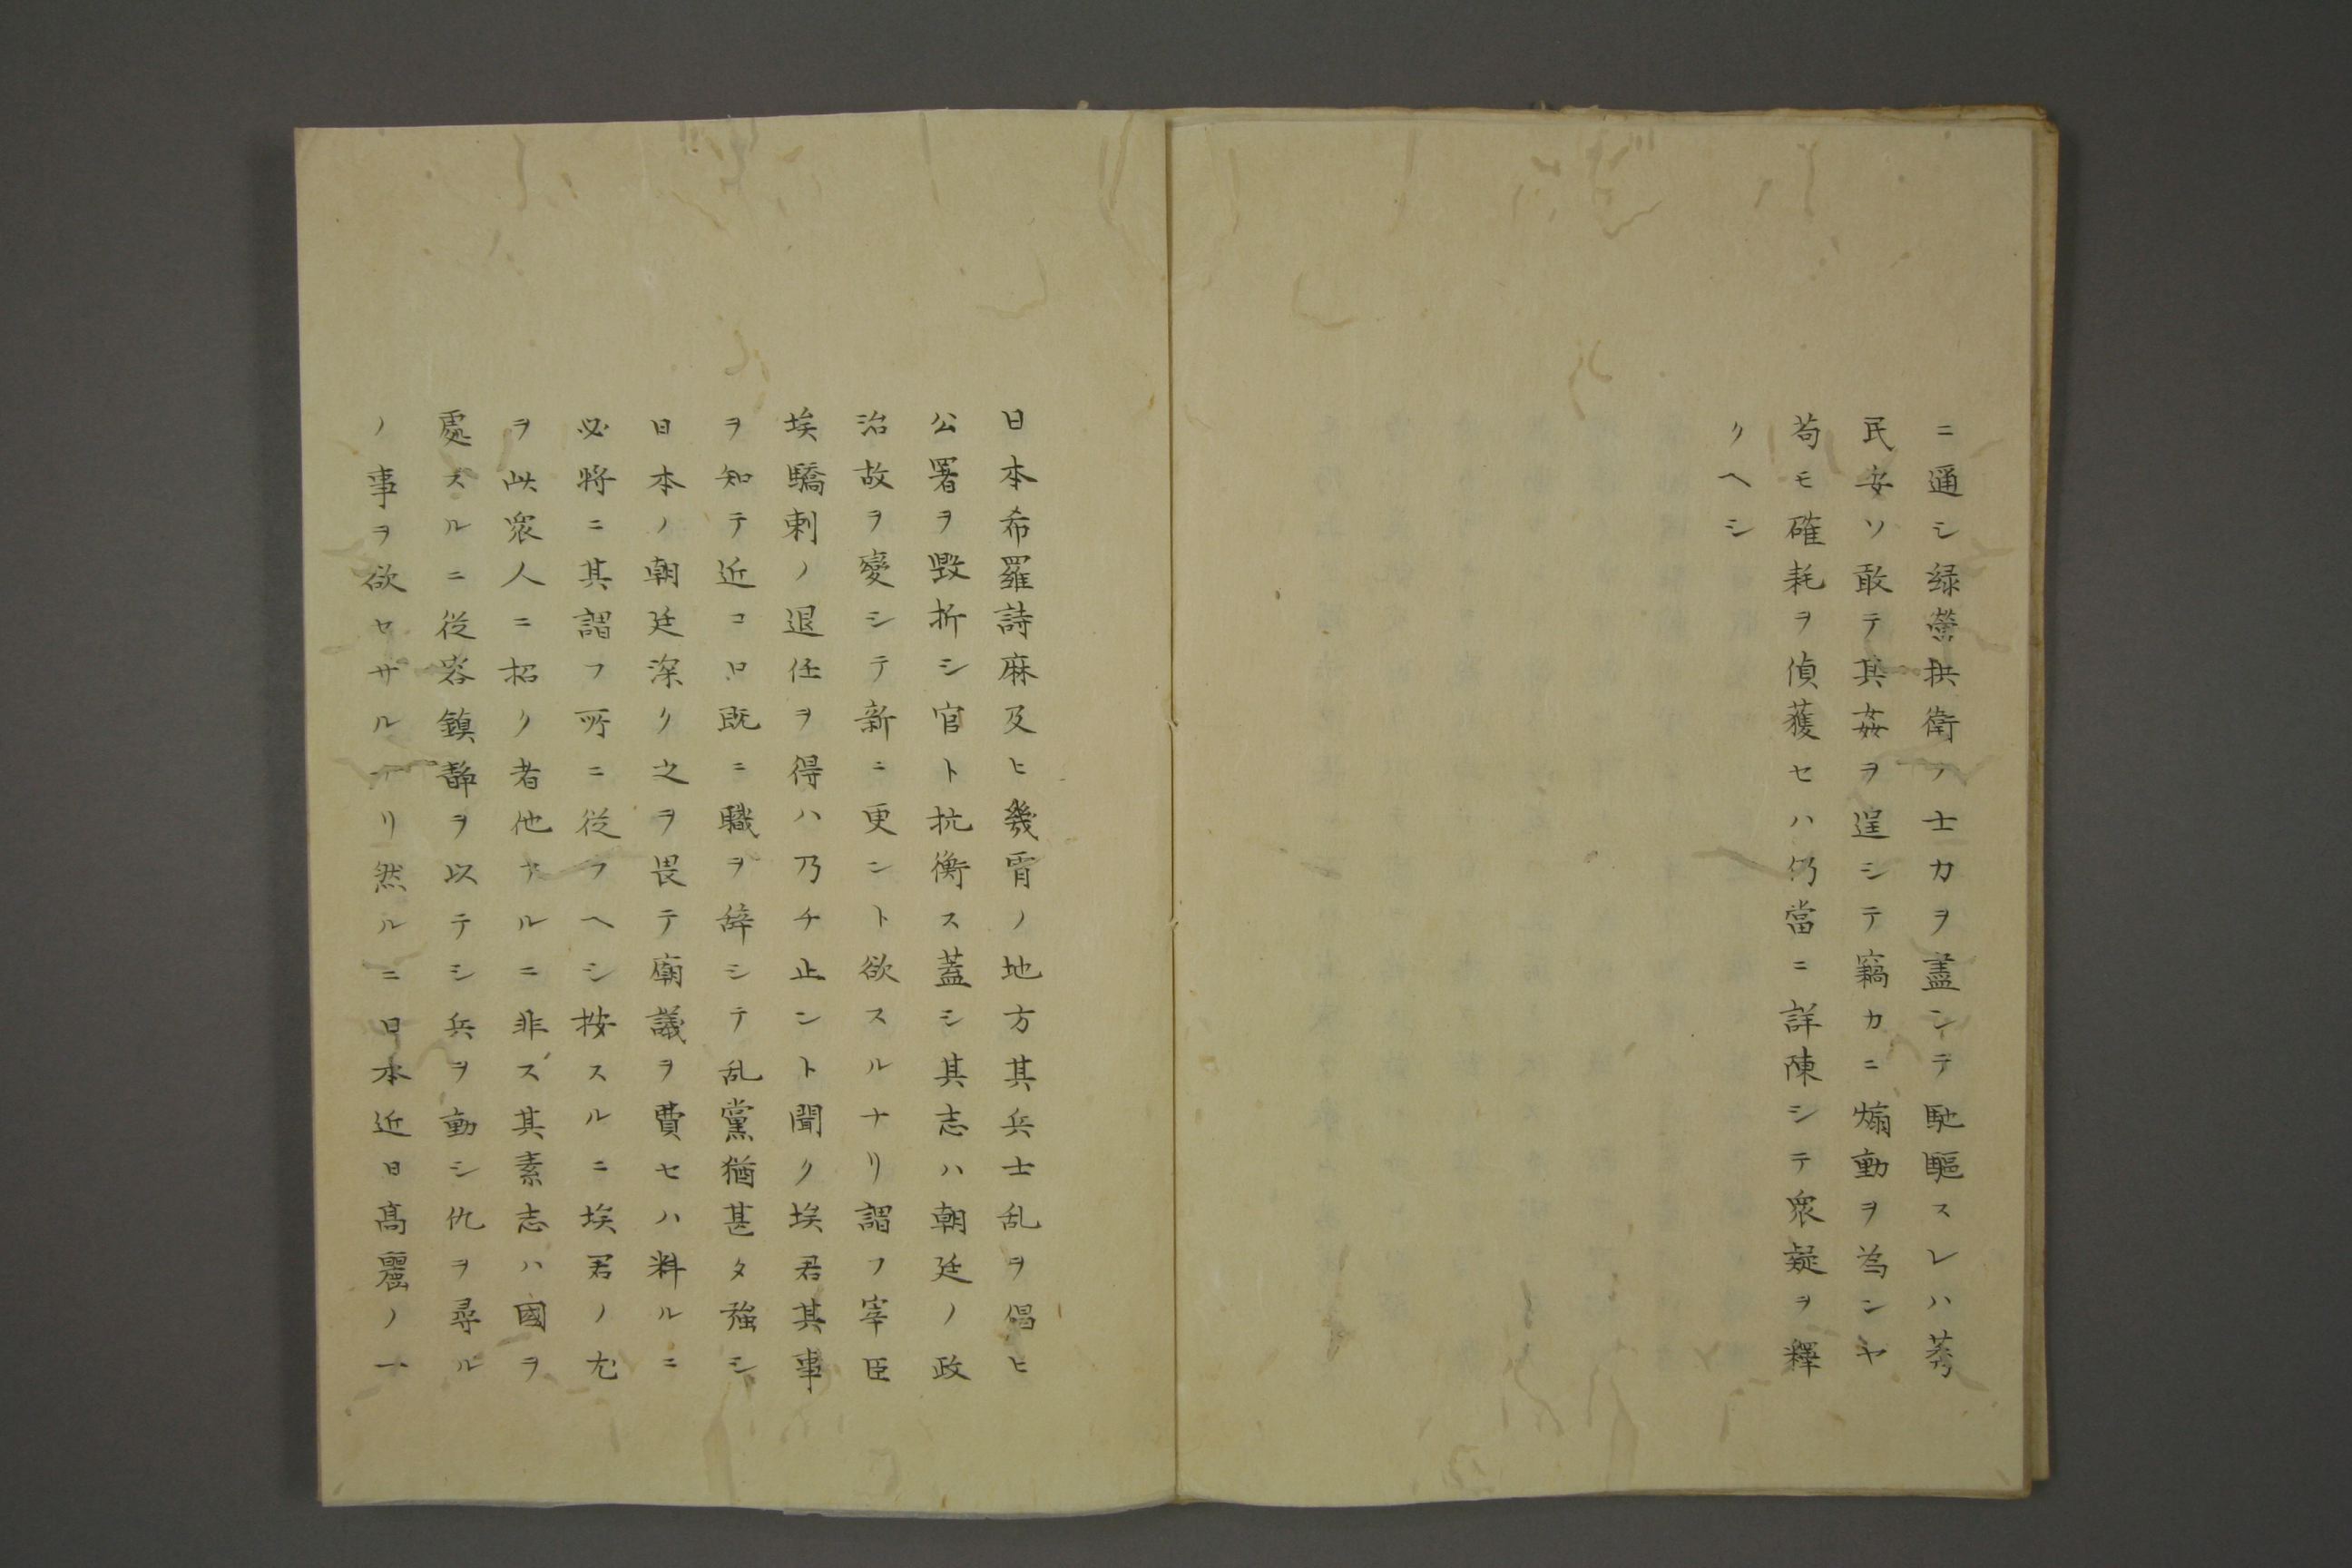 ニ通シ緑営拱衛ノ士力ヲ盡シテ馳驅スレハ莠
民安ソ敢テ其姦ヲ逞シテ竊カニ煽動ヲ為ンヤ
苟モ確耗ヲ偵獲セハ仍當ニ詳陳シテ衆疑ヲ釋
クヘシ
日本希羅詩麻及ヒ幾宵ノ地方其兵士乱ヲ倡ヒ
公署ヲ毀折シ官ト抗衡ス蓋シ其志ハ朝廷ノ政
治故ヲ變シテ新ニ更ント欲スルナリ謂フ宰臣
埃驕剌ノ退任ヲ得ハ乃チ止ント聞ク埃君其事
ヲ知テ近コロ既ニ職ヲ辞シテ乱黨猶甚タ強シ
日本ノ朝廷深ク之ヲ畏テ廟議ヲ費セハ料ルニ
必將ニ其謂フ所ニ從フヘシ按スルニ埃君ノ尤
ヲ此衆人ニ招ク者他ナルニ非ス其素志ハ國ヲ
處スルニ從容鎮静ヲ以テシ兵ヲ動シ仇ヲ尋ル
ノ事ヲ欲セサルナリ然ルニ日本近日髙麗ノ一